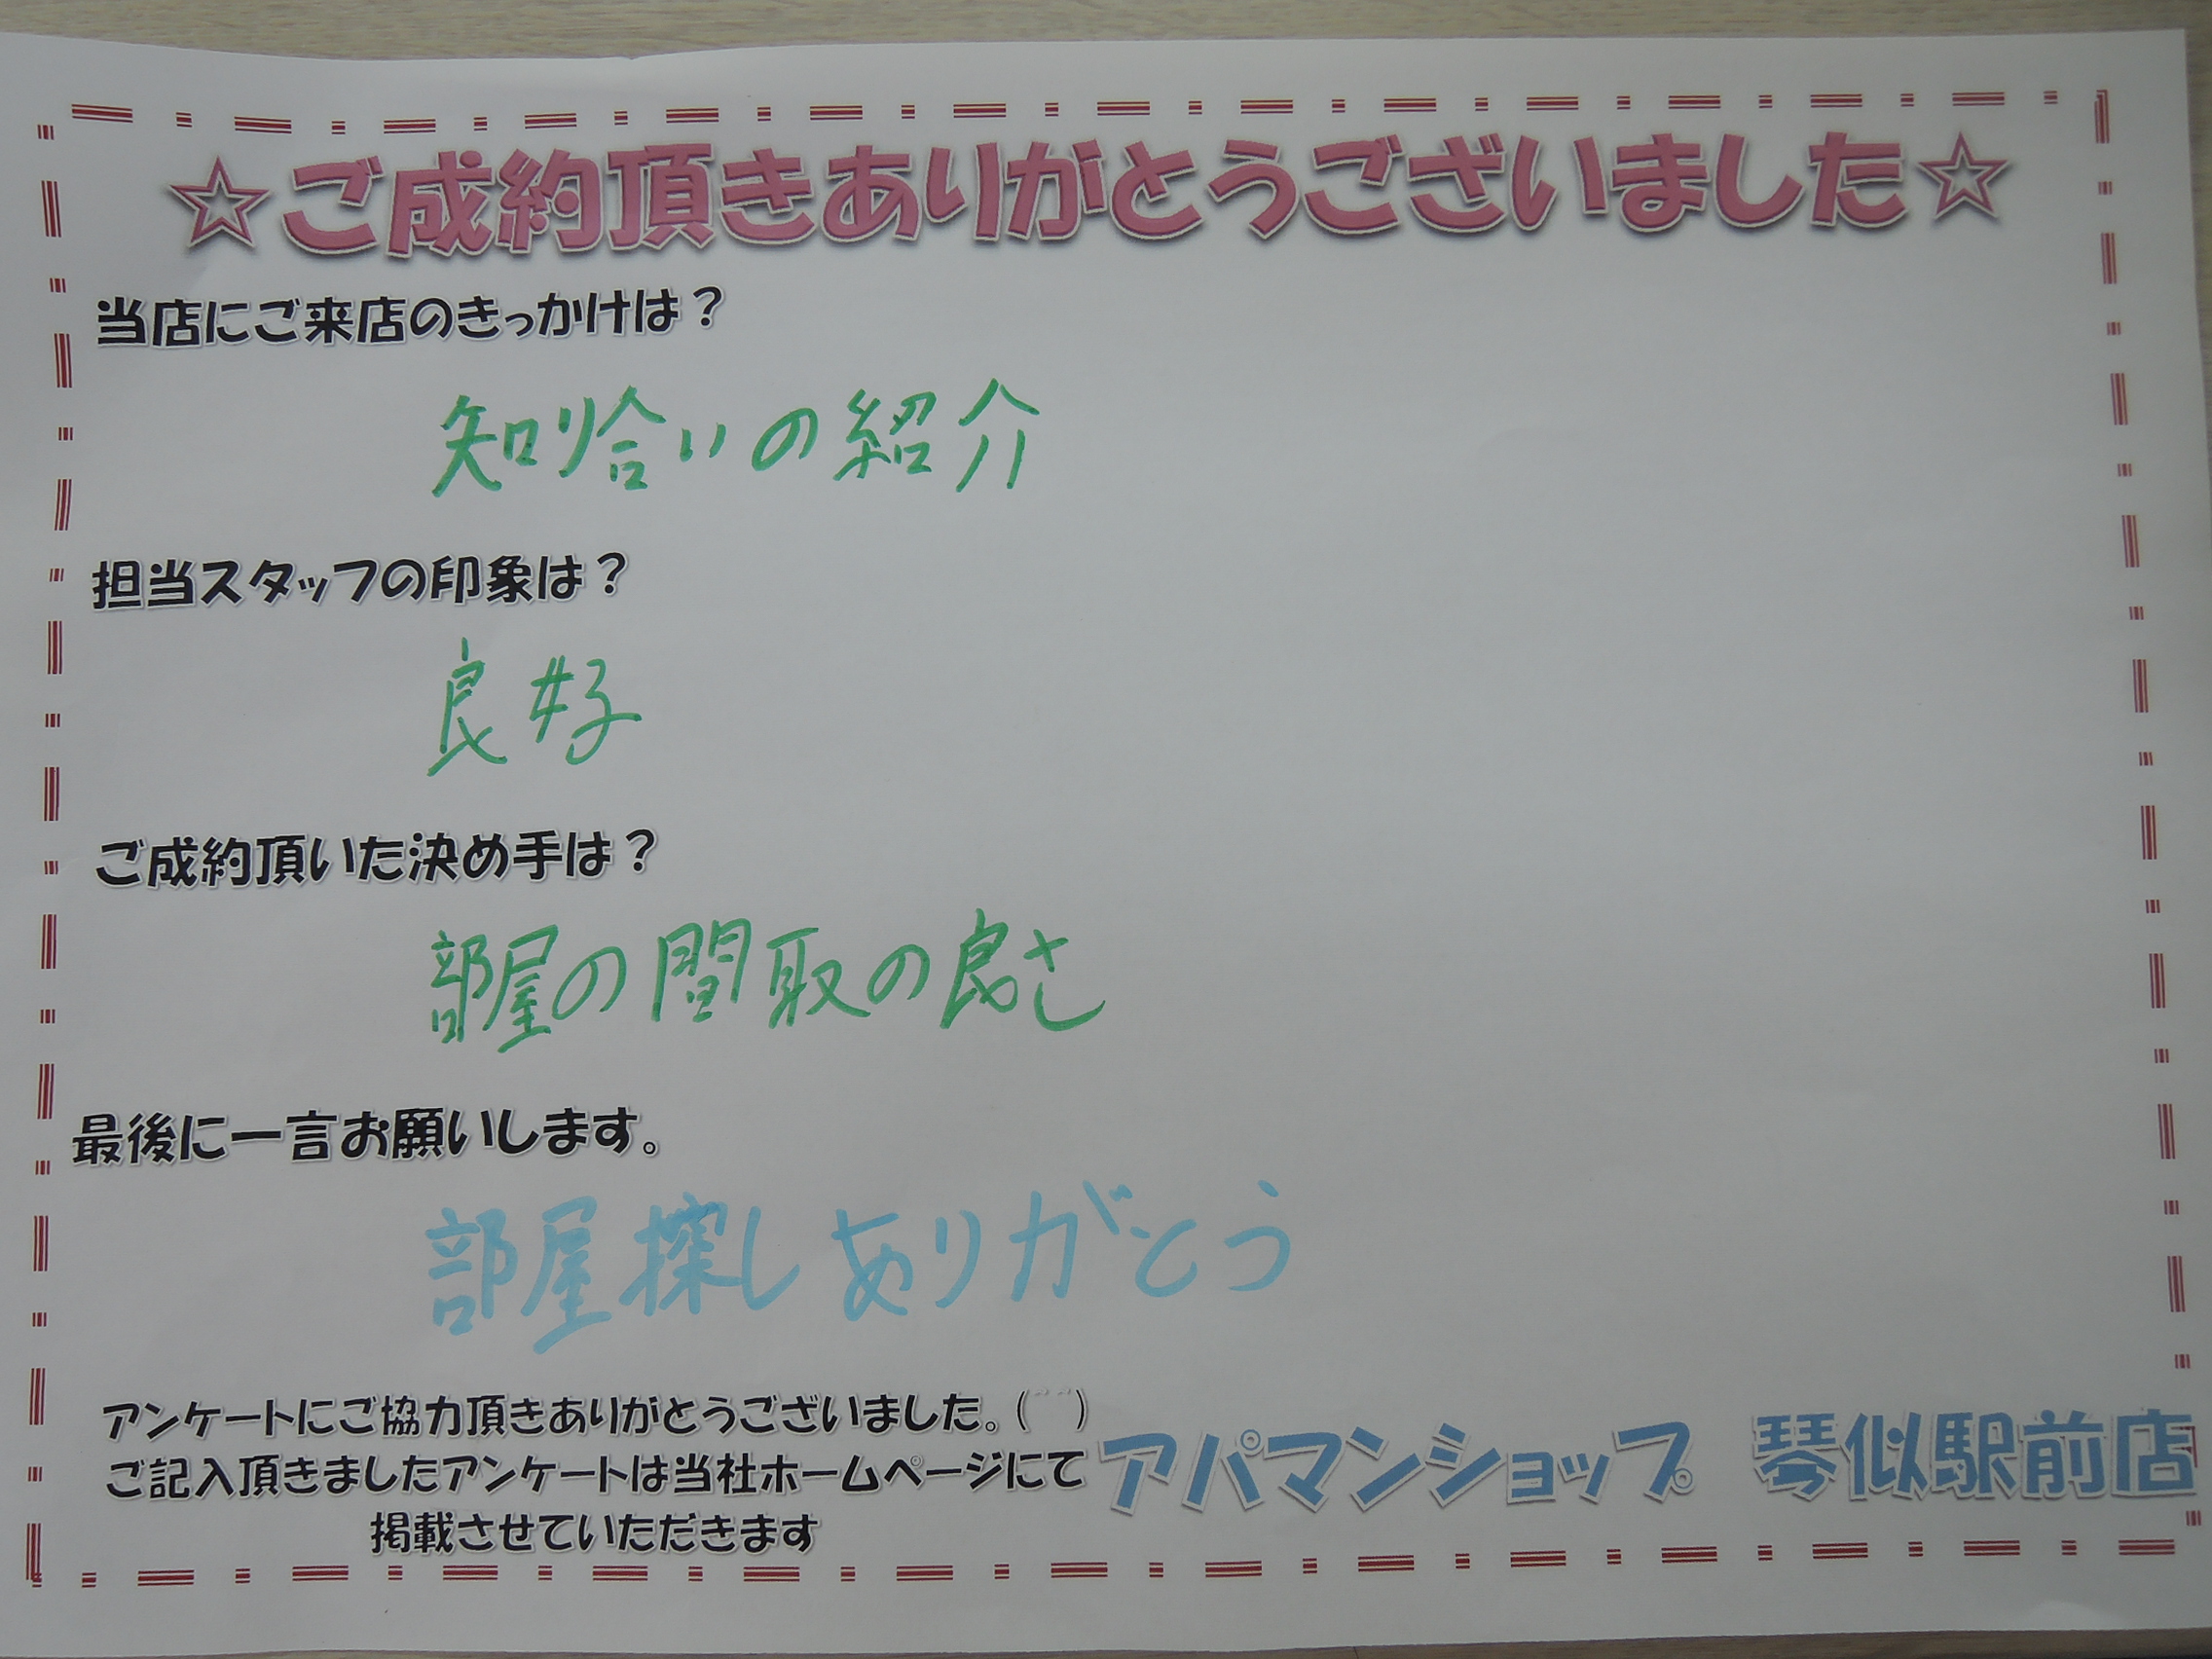 ☆ご成約頂きありがとうございました☆
当店にご来店のきっかけは？
知り合いの紹介
担当スタッフの印象は？
良好
ご成約頂いた決め手は？
部屋の間取の良さ
最後に一言お願いします。
部屋探しありがとう
アンケートにご協力頂きありがとうございました。(^^)
ご記入頂きましたアンケートは当社ホームページにて
掲載させていただきます
アパマンショップ 琴似駅前店